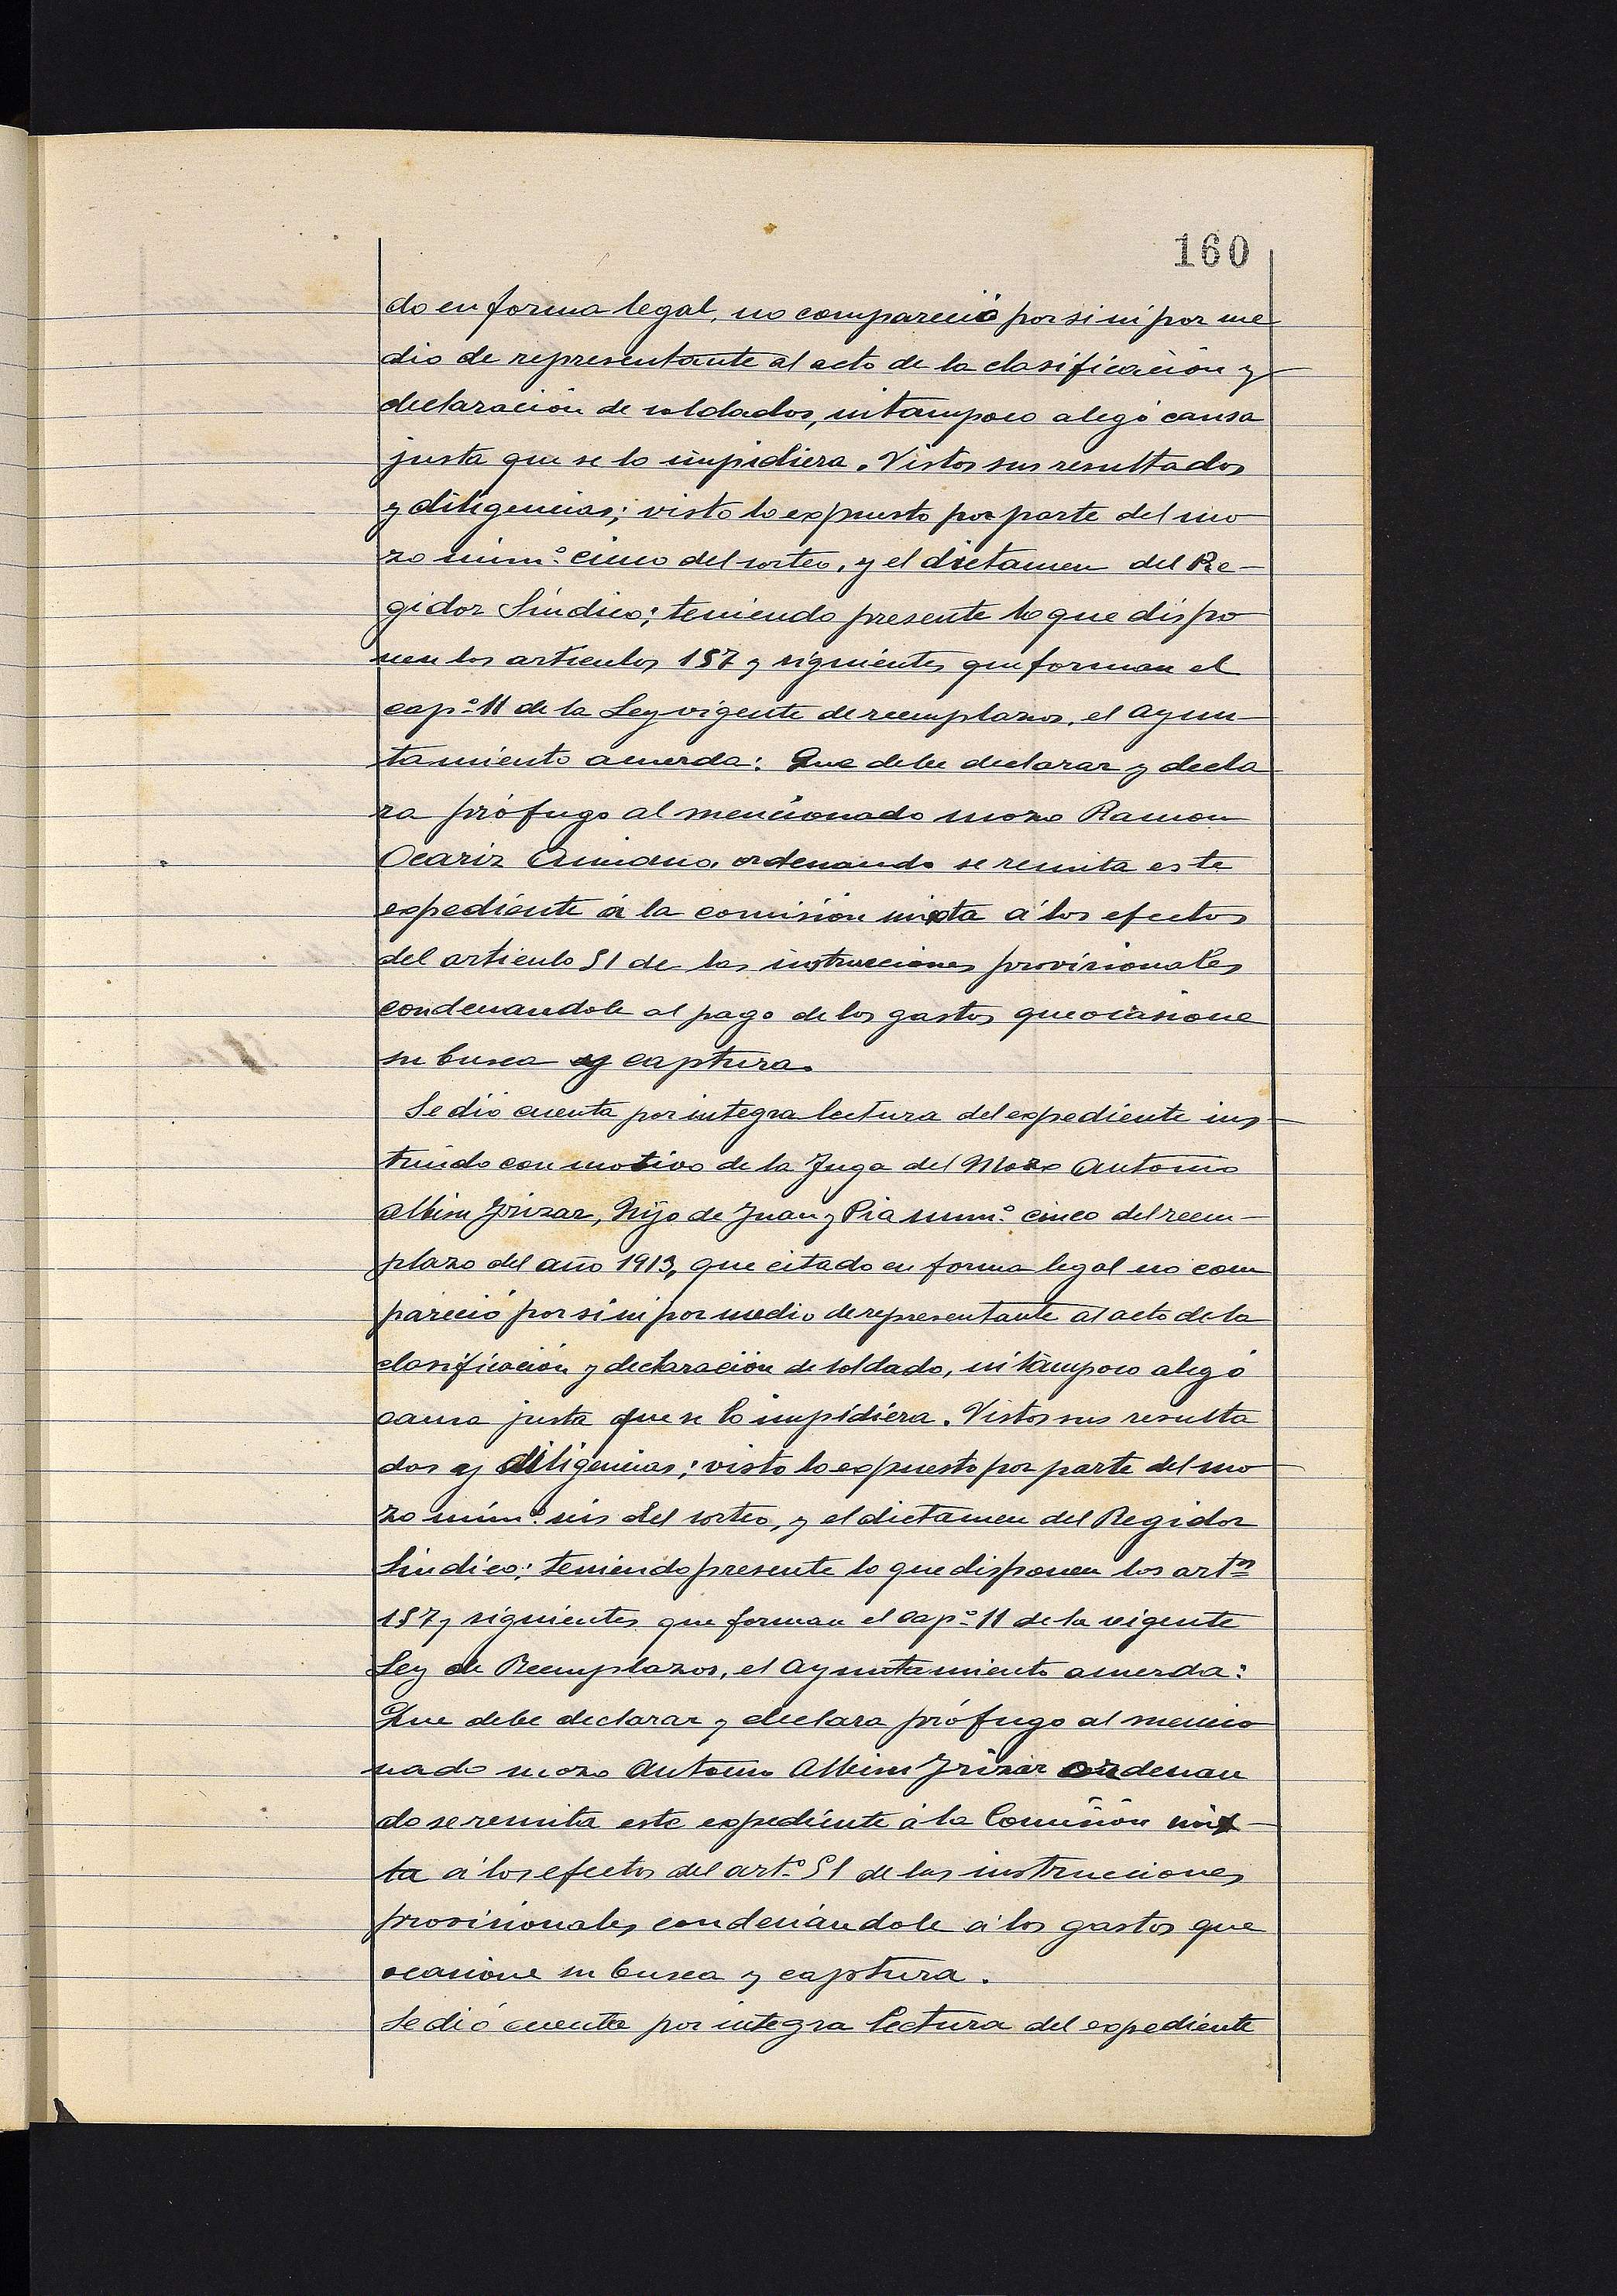 160
do en forma legal, no compareció por si ni por me
dio de representante al acto de la clasificación y
declaración de soldados, ni tampoco alegó causa
justa que se lo impidiera. Vistos sus resultados
y diligencias; visto lo expuesto por parte del mo
zo núm.º cinco del sorteo, y el dictamen del Re-
gidor Síndico; teniendo presente lo que dispo
nen los articulos 157 y siguientes que forman el
cap.º 11 de la Ley vigente de reemplazos, el Ayun-
tamiento acuerda: Que debe declarar y decla
ra prófugo al mencionado mozo Ramon
Ocariz ordenando se remita este
expediente á la comisión mixta á los efectos
del articulo 51 de las instrucciones provisionales
condenandole al pago de los gastos que ocasione
su busca y captura.
Se dió cuenta por integra lectura del expediente ins-
truido con motivo de la fuga del Mozo Antonio
Albisu Irizar, Hijo de Juan y Pia núm.º cinco del reem-
plazo del año 1913, que citado en forma legal no com
pareció por si ni por medio de representante al acto de la
clasificación y declaración de soldado, ni tampoco alegó
causa justa que se lo impidiera. Vistos sus resulta
dos y diligencias; visto lo expuesto por parte del mo
zo núm.º seis del sorteo, y el dictamen del Regidor
Sindico; teniendo presente lo que disponen los art.os
157 y siguientes que forman el cap.º 11 de la vigente
Ley de Reemplazos, el Ayuntamiento acuerda:
Que debe declarar y declara prófugo al mencio
nado mozo Antonio Albisu Irizar ordenan
do se remita este expediente á la Comisión mix-
ta á los efectos del art.º 51 de las instrucciones
provisionales condenándole á los gastos que
ocasione su busca y captura.
Se dió cuenta por integra lectura del expediente